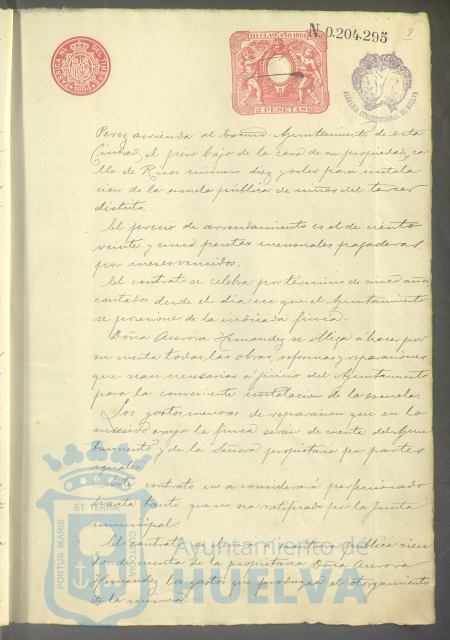 N. 0.204.295
9
FABRICA NL. DEL TIMBRE
1894
11ª CLASE AÑO 1894
2 PESETAS
ALCALDIA CONSTITUCIONAL DE HUELVA
Perez arrienda al Ayuntamiento de esta
Ciudad, el piso bajo de la casa de su propiedad, ca
lle de Ricos numero diez y ocho para instala
cion de la escuela pública de niñas del tercer
distrito.
El precio de arrendamiento es el de ciento
veinte y cinco pesetas mensuales pagaderas
por meses vencidos.
El contrato se celebra por termino de cinco años,
contados desde el dia en que el Ayuntamiento
se posesione de la indicada finca.
Doña Aurora Hernandez se obliga á hacer por
su cuenta todas las obras, reformas y reparaciones
que sean necesarias á juicio del Ayuntamiento
para la conveniente instalacion de la escuela.
Los gastos menores de reparacion que en lo
sucesivo exija la finca serán de cuenta del Ayun
tamiento y de la Señora propietaria por partes
iguales.
Este contrato no se considerará perfeccionado
hasta tanto que no sea ratificado por la Junta
municipal.
El contrato se elevará a escritura pública sien
do de cuenta de la propietaria Doña Aurora
Hernandez los gastos que produzca el otorgamiento
de la misma.
PORTUS MARIS
ET TERRÆ
CUSTODIA
Ayuntamiento de
HUELVA